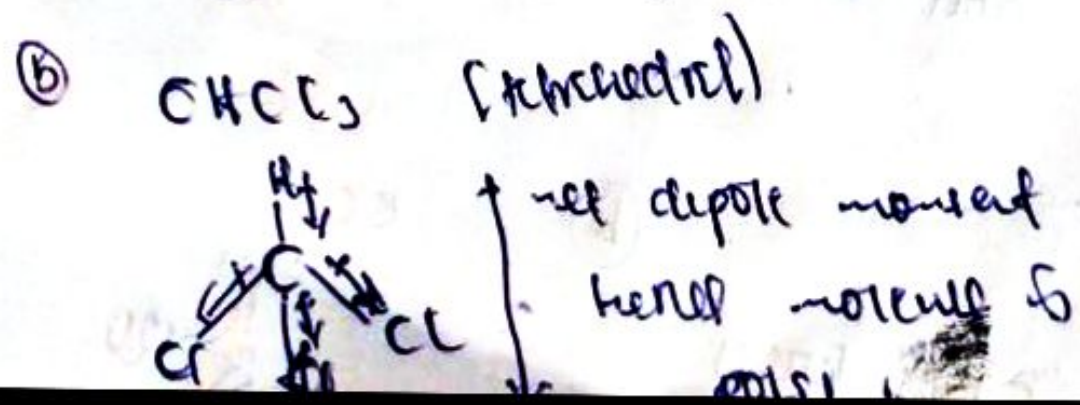 (b) CHCl3 (tetrahedral)
H
C
Cl Cl
net dipole moment
hence molecule is
polar